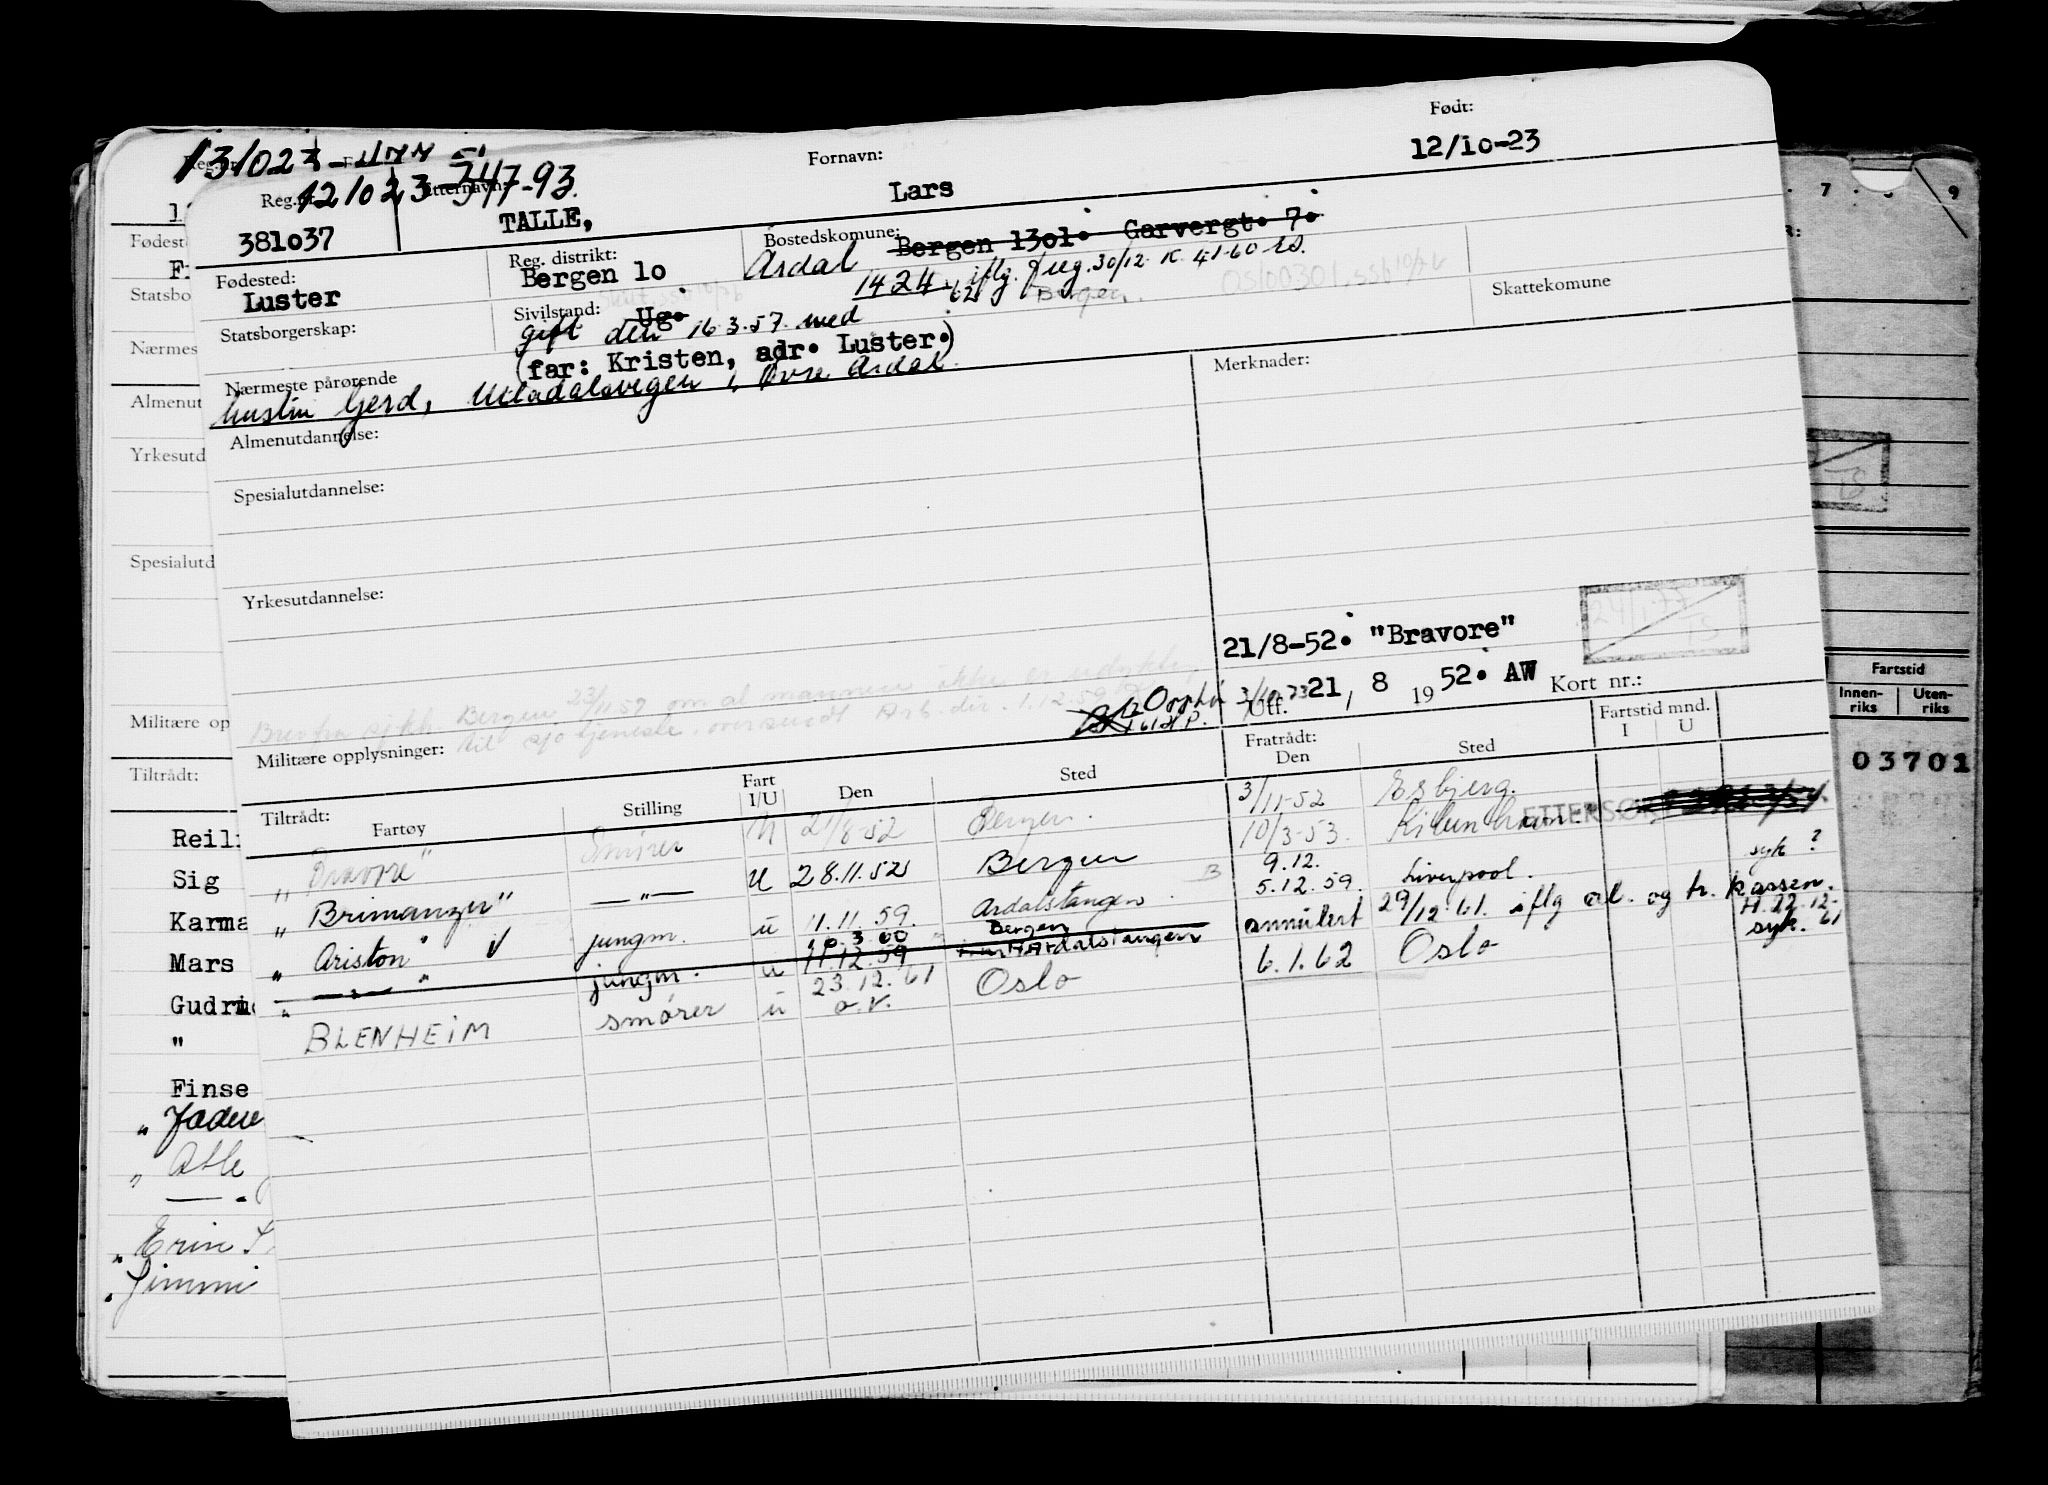 131023
Reg.nr. 121023 347-93.
Etternavn:
Fornavn:
Født:
381o37
TALLE,
Lars
12/1o-23
Fødested:
Luster
Reg. distrikt:
Bergen 1o
Bostedskomune:
Bergen 13o1. Garvergt. 7.
Årdal 1424 iflg. J reg. 30/12
Bergen.
Skattekomune
Statsborgerskap:
Sivilstand: Ug.
gift den 16.3.57. med
Nærmeste pårørende
(far: Kristen, adr. Luster.)
hustru Gerd, Utladalsvegen, Øvre Årdal.
Merknader:
Almenutdannelse:
Spesialutdannelse:
Yrkesutdannelse:
21/8-52. "Bravore"
Utf. 21, 8 1952. AW
Kort nr.:
Brev fra sjkk. Bergen 23/11 59 om at mannen ikke er
til sjøtjeneste, oversendt Arb.dir. 1.12.59
Militære opplysninger:
Tiltrådt:
Fartøy
Stilling
Fart
I/U
Den
Sted
Fratrådt:
Den
Sted
Fartstid mnd.
I U
„ Bravore" Smører U 21/8-52 Bergen. 3/11-52 Esbjerg.
„ Brimanger" —"— U 28.11.52 Bergen 10/3-53.
„ Ariston" jungm. u 11.11.59. Årdalstangen 9.12. 5.12.59. Liverpool. syk ?
„ —"— " jungm. u 10.3.60 11.12.59 Bergen Årdalstangen annulert 29/12.61. iflg al. og tr. kassen. H.22.12.61
BLENHEIM smører u 23.12.61 Oslo 6.1.62 Oslo syk.
o.v.
Fødest
Statsbo
Nærmes
Almenut
Yrkesutd
Spesialutd
Militære op
Tiltrådt:
Sig
Karma
Mars
"
Finse
„ Atle
„ Jimmi
7 9
Fartstid
Innen-
riks
Uten-
riks
03701